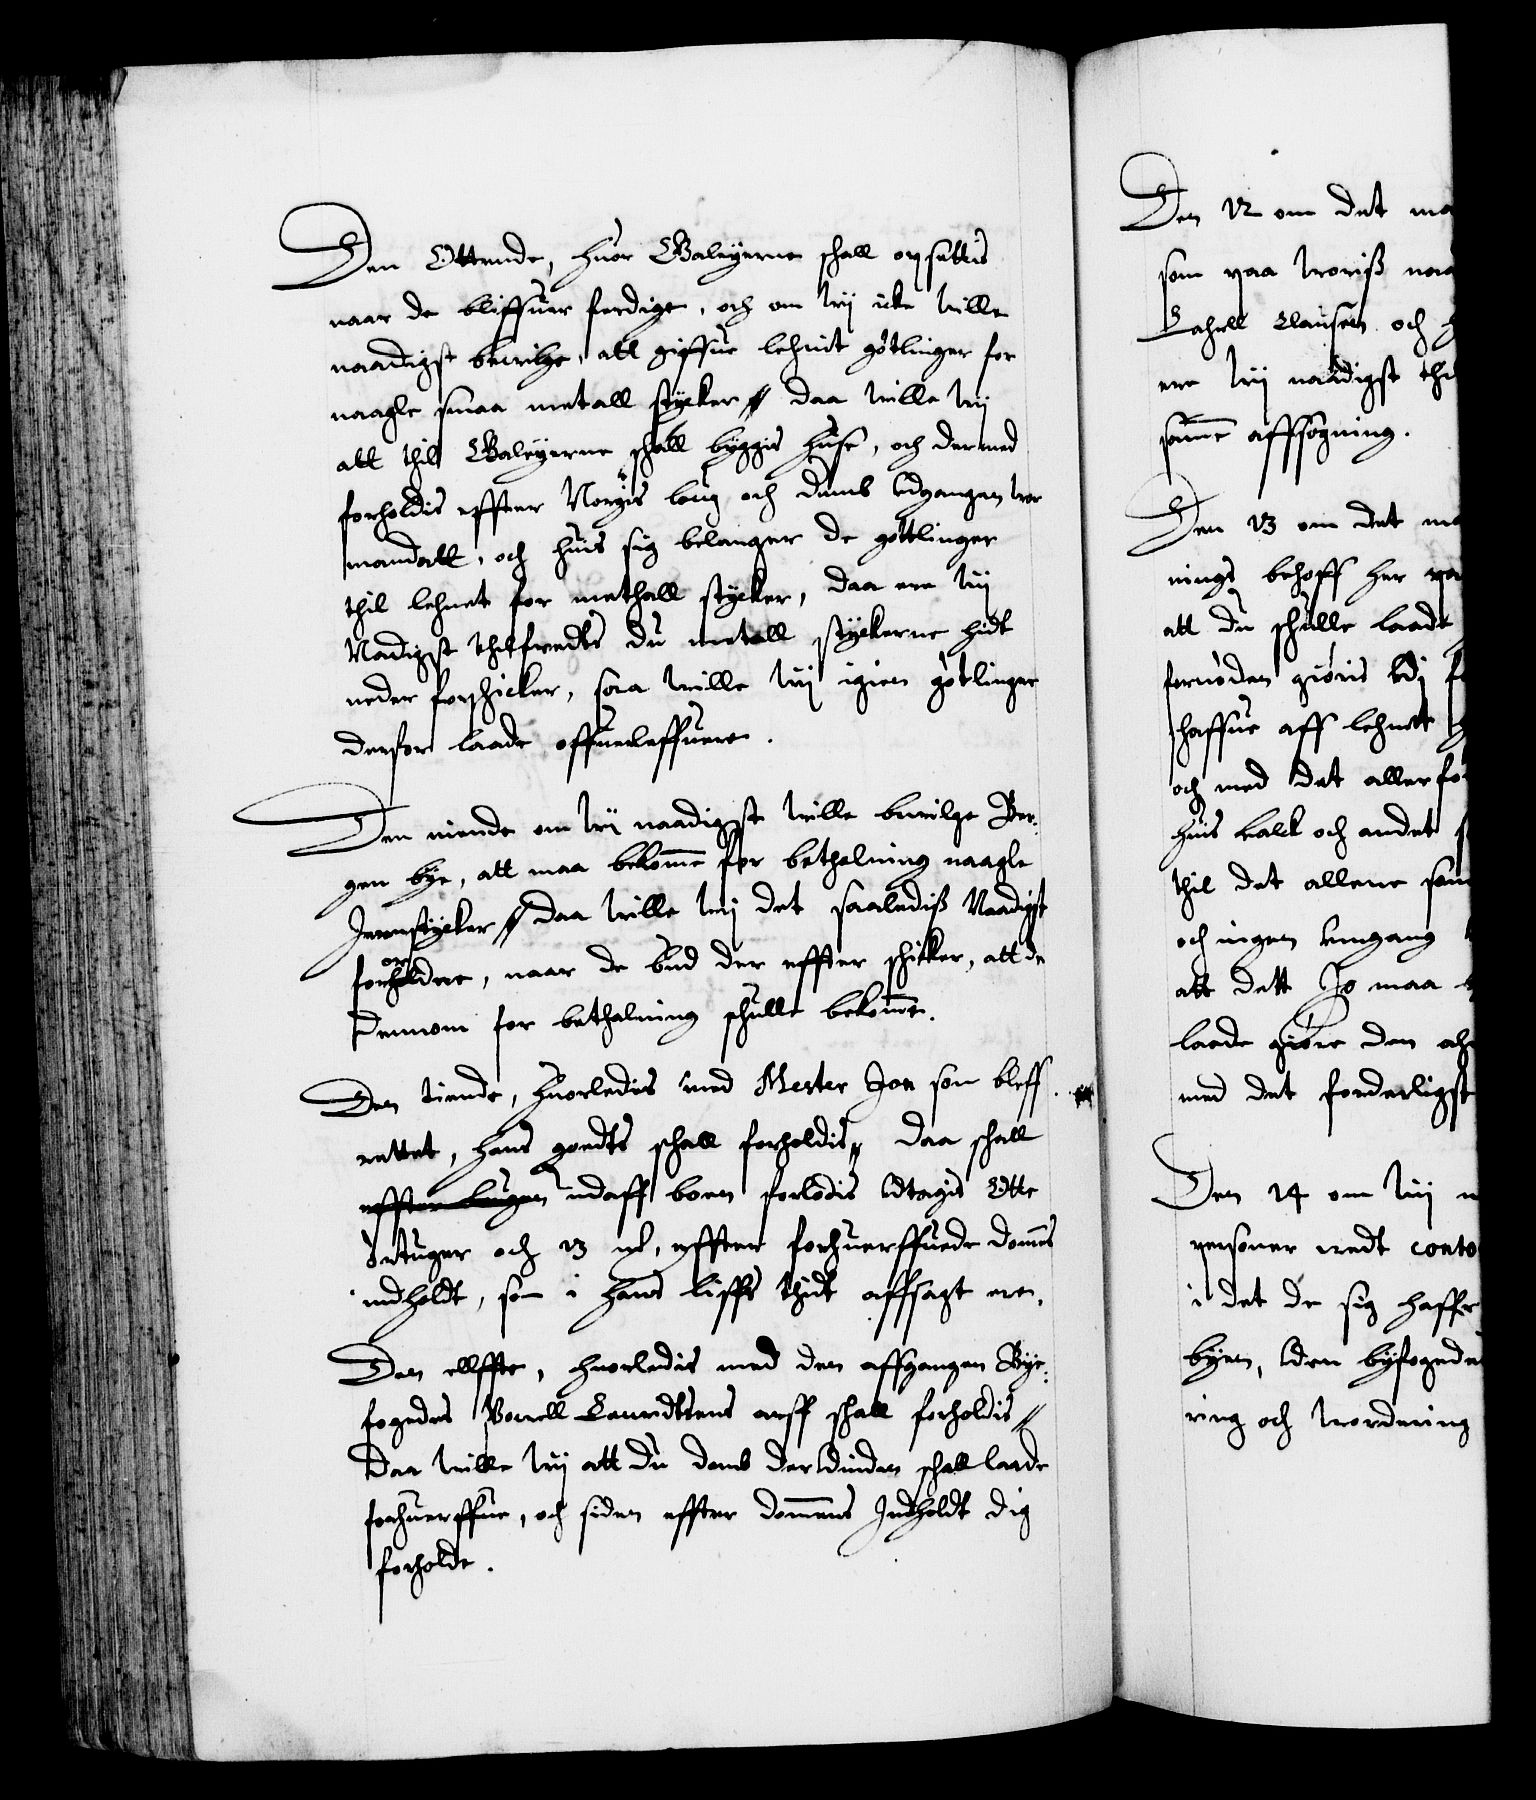 Den Ottende, huor Galeyerne shall opsettis
naar de bliffuer ferdige, och om wij icke wille
naadigst bewilge, att giffue lehnit götlinger for
naagle smaa metall stycker // daa wille wij
att thil Galeyerne shall byggis huse, och dermed
forholdis effter Norgis loug och dends Udgangen wor
mandatt, och huis sig belanger de gottlinger
thil lehnet for methall stycker, daa ere wij
Nadigst thilfredts du metall styckerne hidt
neder forshicker, saa wille wij igien götlinger
derfor laade offuerleffuere.
Den niende om wij naadigst wille bewilge Ber-
gen bye, att maa bekomme for bethalning naagle
Jernstycker // daa wille wij det saalediß Naadigst
forordne, naar de bud der effter shicker, att de
dennom for bethalning schulle bekomme.
Den tiende, huorledis med Mester Jon som bleff
rettet, hans goedts schall forholdis // daa schall
effter lugen udaff boen forlods Udtagis Otte
örtuger och 13 mk, effter forhuerffuede doms
indholdt, som i hans liffs thidt affsagt ere.
Den ellffte, huorledis med den affgangen Bye-
fogedes Povell Lauridtsens arff shall forholdis //
daa wille wij att du domb derUdinden schall laade
forhuerffue, och siden effter dommens Indholdt dig
forholde.
Den 12 om det ma
som paa woriß naa
Lahell Clausen och
ere wij naadigst thi
samme affsogning.
Den 13 om det ma
nings behoff her pa
att du schulle laade
fornöden giöris Udj
schaffue aff lehnet
och med det allerfo
huis kalck och andet
thil det allene som
och ingen Umgang
att dett Jo maa
laade giöre den
med det forderligst
Den 14 om wij
personer wedt conto
i det de sig haffr
byen, Uden byfogede
ring och wordering